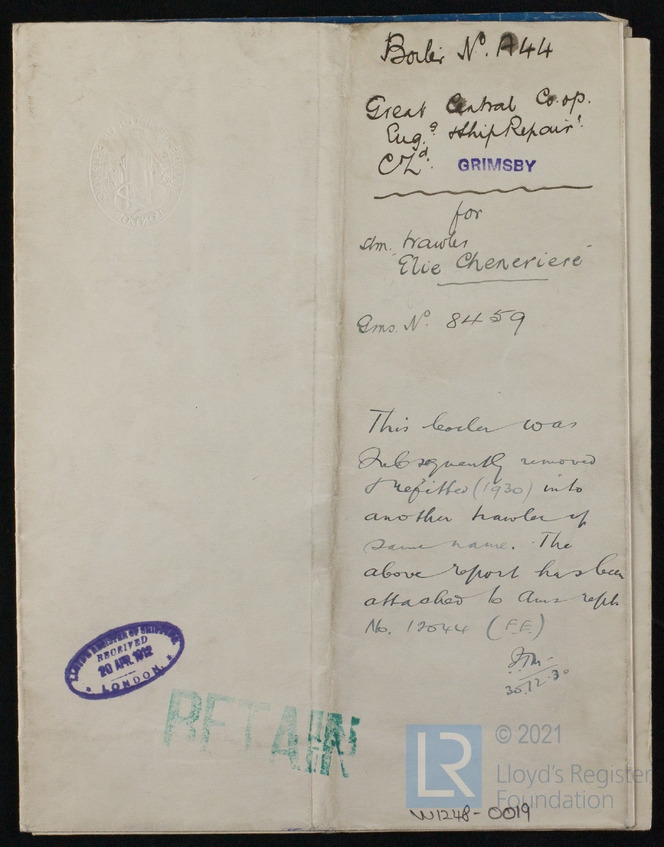 Boiler No. A44
Great Central Co-op.
Eng.g & Ship Repair.g
C Ld. GRIMSBY
for
stm. trawler
"Elie Cheneviere"
Gms. No. 8459
This boiler was
subsequently removed
& refitted (1930) into
another trawler of
same name. The
above report has been
attached to Ams rept.
No. 12044 (F.E.)
30.12.30
LLOYD'S REGISTER OF SHIPPING
RECEIVED
20 APR. 1912
LONDON.
RETAIN
LR
© 2021
Lloyd's Register
Foundation
W1248-0019